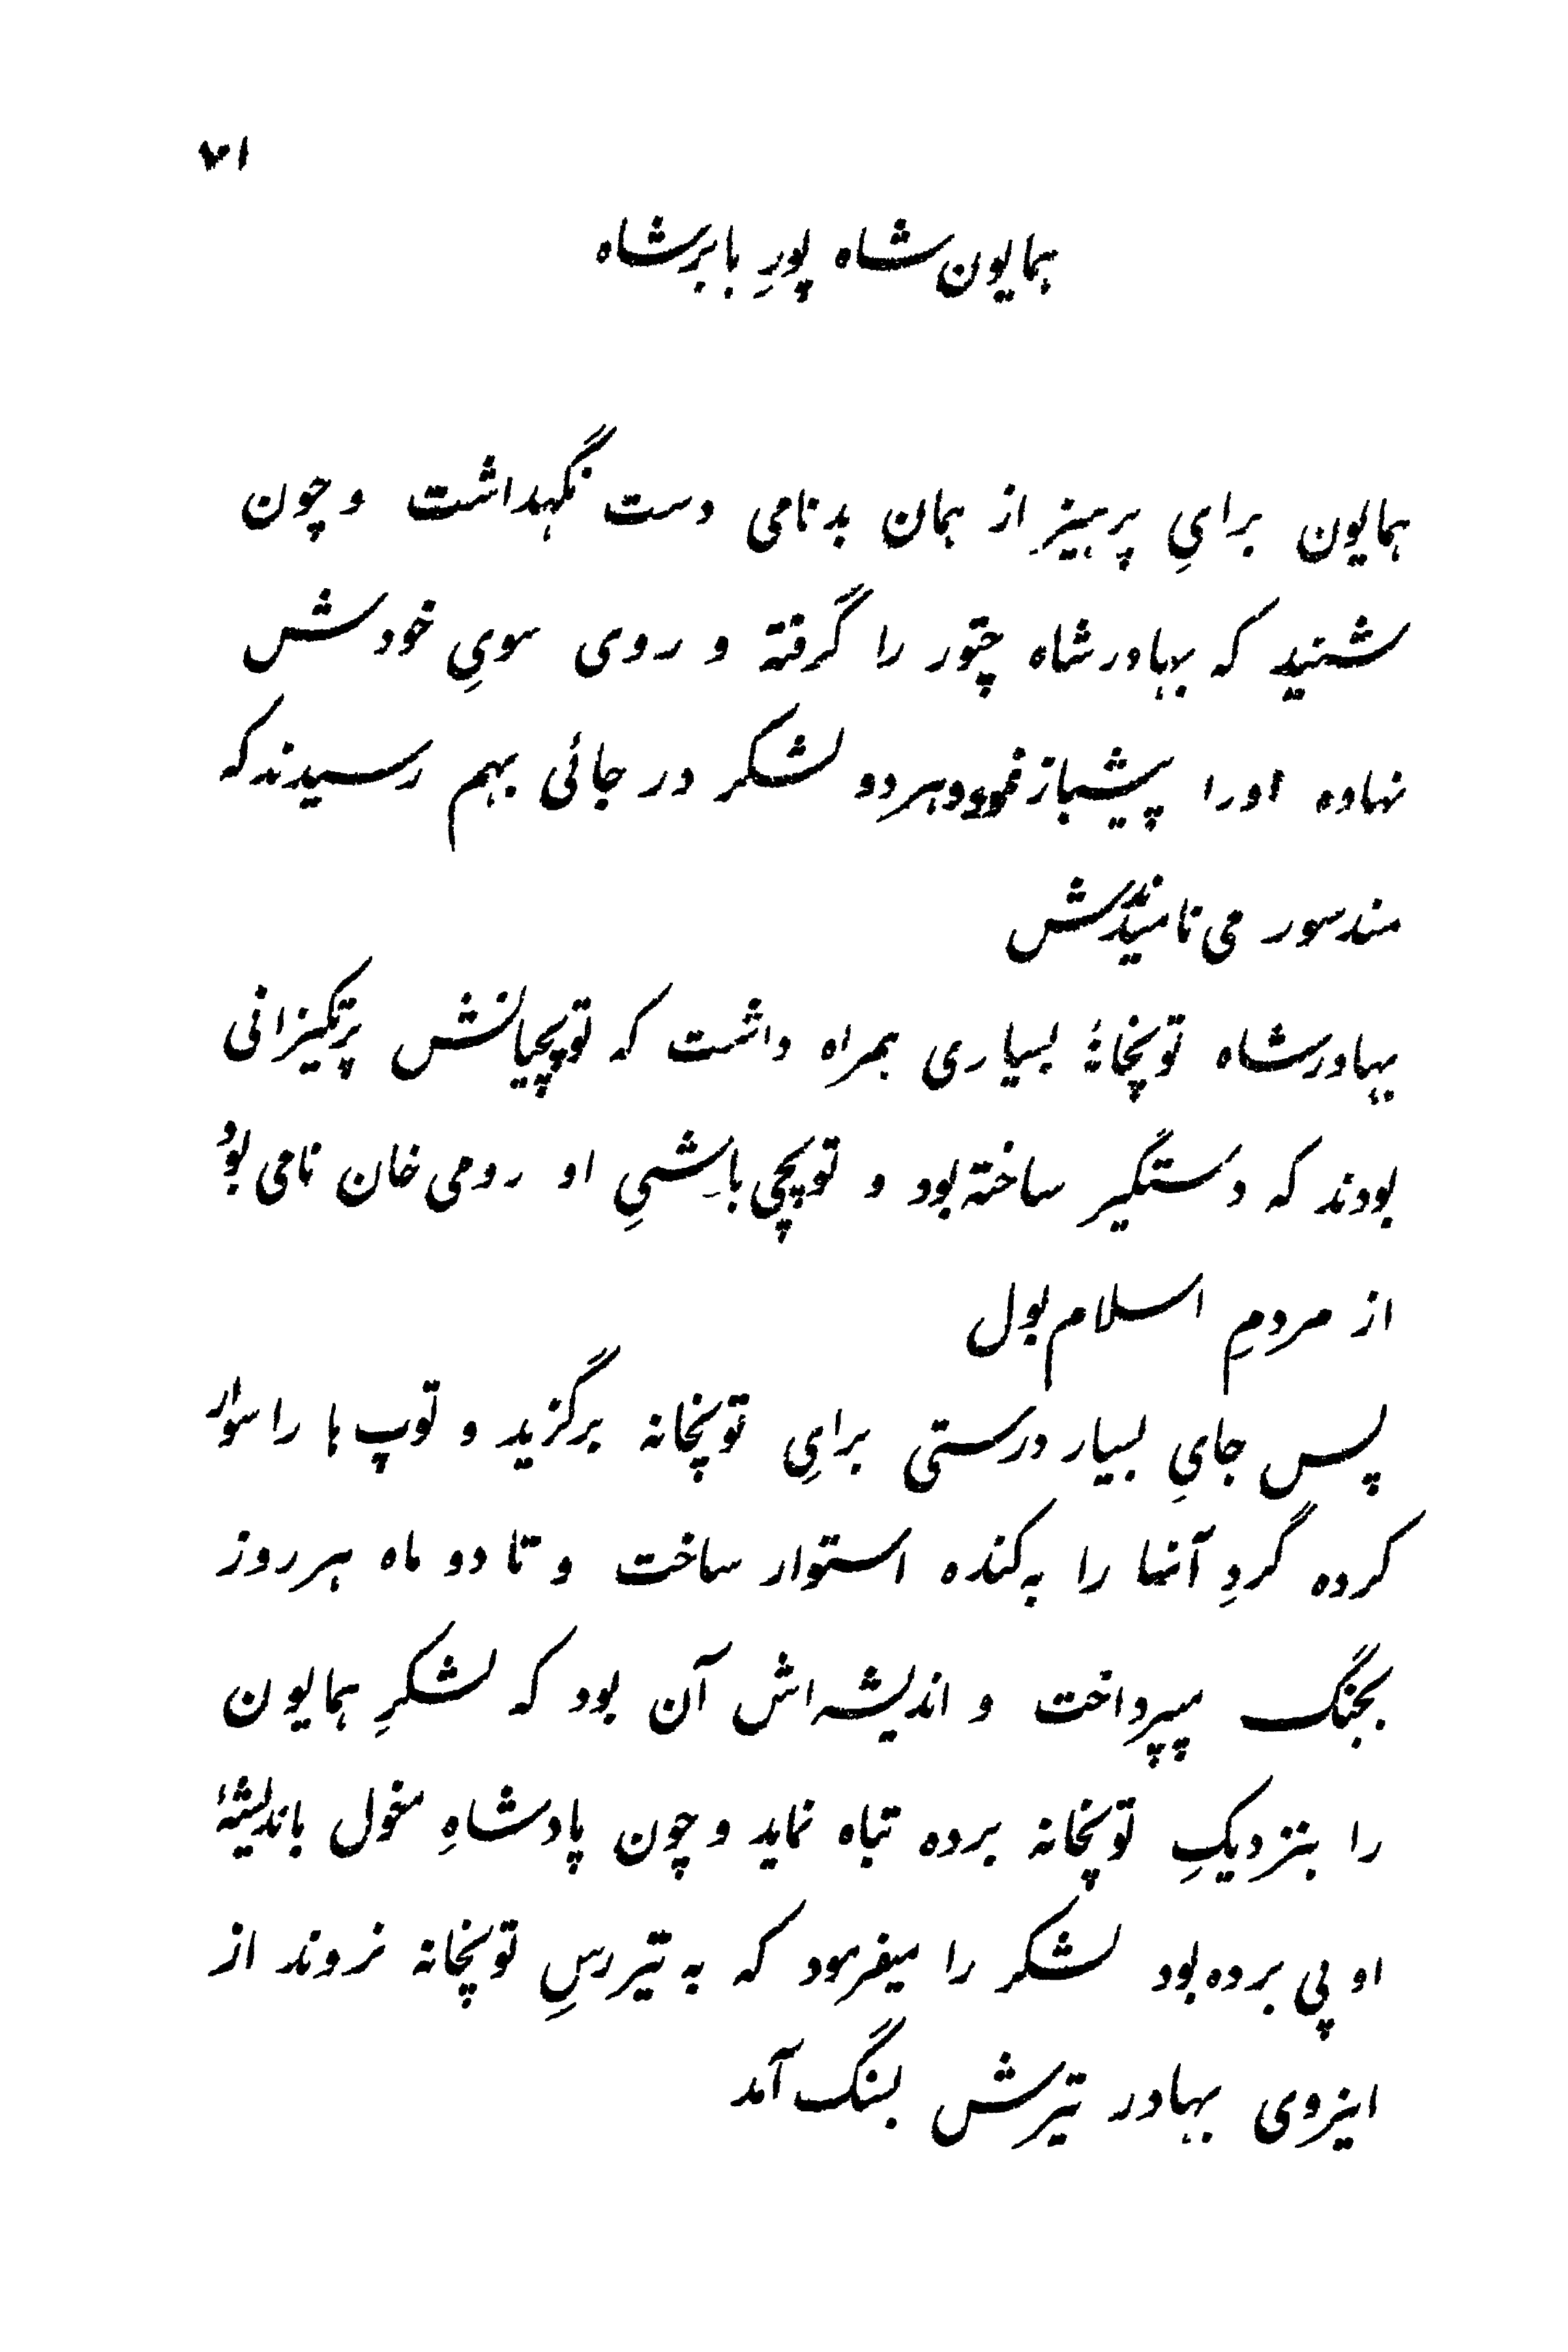 ۷۱
همایون‌شاه پورِ بابرشاه
همایون برایِ پرهیز از همان بدنامی دست نگهداشت و چون
شنید که بهادرشاه چتور را گرفته و روی سویِ خودش
نهاده اورا پیشباز نمود و هر دو لشکر در جائی بهم رسیدند که
مندسور می نامیدندش
بهادرشاه توپخانهٔ بسیاری همراه داشت که توپچیانش پرتکیزانی
بودند که دستگیر ساخته بود و توپچی باشیِ او رومی خان نامی بود
از مردمِ اسلام بول
پس جایِ بسیار درستی برایِ توپخانه برگزید و توپ ها را سوار
کرده گردِ آنها را به کنده استوار ساخت و تا دو ماه هر روز
بجنگ میپرداخت و اندیشه اش آن بود که لشکرِ همایون
را بنزدیکِ توپخانه برده تباه نماید و چون پادشاهِ مغول باندیشهٔ
او پی برده بود لشکر را میفرمود که به تیررسِ توپخانه نروند از
اینروی بهادر تیرش بسنگ آمد